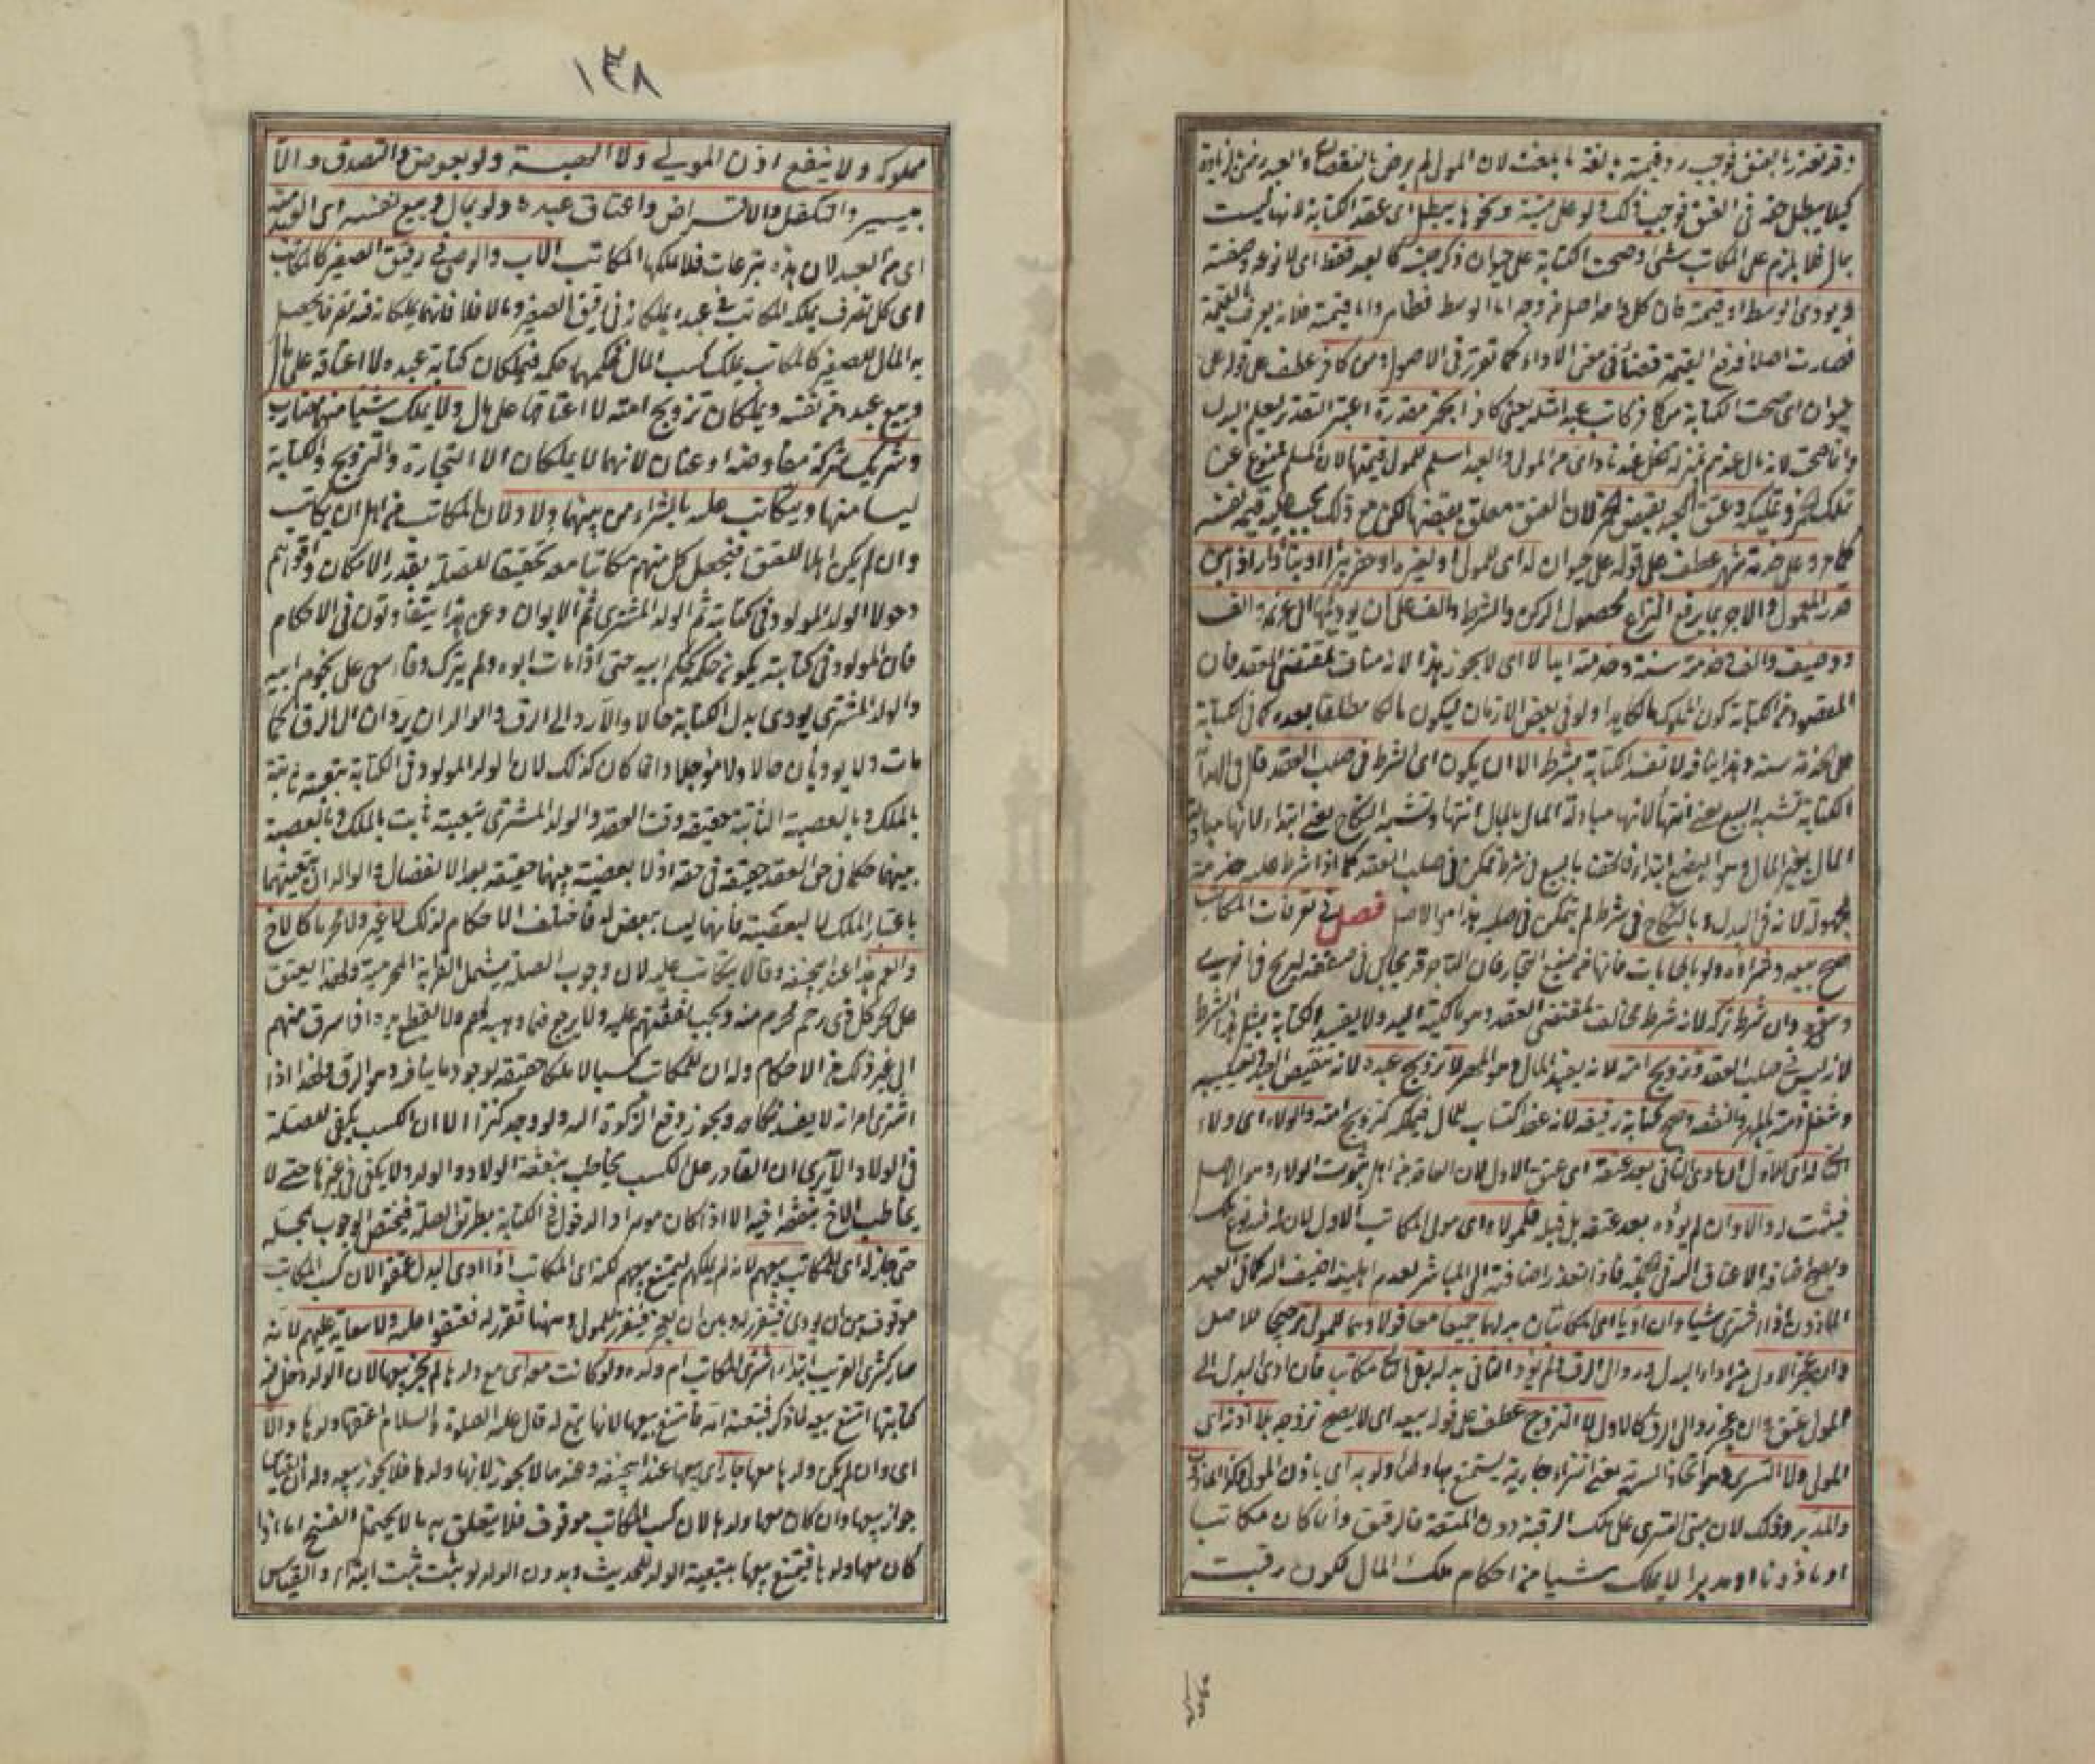 كيلا يبطل حقه في العتق فوجب ذلك ولو على ميتة ونحوها يبطل اى عقد الكتابة لانها ليست
بمال فلا يلزم على المكاتب شئ وصحت الكتابة على حيوان ذكر جنسه كالعبد فقط اى لا نوعه وصفته
ويؤدى الوسط او قيمته فان كل واحد اصل من وجه اما الوسط فظاهر واما قيمته فلانه يعرف بالقيمة
فصارت اصلا فدفع القيمة قضاء في معنى الاداء كما تقرر في الاصول ومن كافر عطف على قوله على
حيوان اى صحت الكتابة من كافر كاتب عبدا مثله يعنى كافرا بخمر مقدرة اعتبر التقدير ليعلم البدل
وانما صحت لانه مال عندهم بمنزلة الخل عندنا واى من المولى والعبد اسلم للمولى قيمتها لان المسلم ممنوع عن
تملك الخمر وتمليكه وعتق العبد بقبض الخمر لان العتق معلق بقبضها لكن مع ذلك يجب عليه قيمة نفسه
كما مر وعلى خدمة شهر عطف على قوله على حيوان له اى للمولى او لغيره او حفر بئر او بناء دار اذا بين
قدر المعمول والاجر بما يرفع النزاع لحصول الركن والشرط والف على ان يؤديها الى غريمه الف
ووصيف والف وخدمته سنة وخدمته ابدا لا اى لا يجوز هذا لانه مناف لمقتضى العقد فان
المقصود من الكتابة كون المملوك مالكا يدا ولو في بعض الازمان ليكون مالكا مطلقا بعده كما في الكتابة
على خدمة سنة وهذا ينافيه لا تفسد الكتابة بشرط الا ان يكون اى الشرط في صلب العقد قال في الهداية
الكتابة تشبه البيع يعنى انتهاء لانها مبادلة المال بالمال انتهاء وتشبه النكاح يعنى ابتداء لانها مبادلة
المال بغير المال وهو البضع ابتداء فالحقت بالبيع في شرط تمكن في صلب العقد كما اذا شرط عليه خدمة
مجهولة لانه في البدل وبالنكاح في شرط لم يتمكن في صلبه هذا هو الاصل فصل في تصرفات المكاتب
صح بيعه وشراؤه ولو بالمحاباة فانها من صنيع التجار فان التاجر قد يحابى في صفقة ليربح في اخرى
وسفره وان شرط تركه لانه شرط مخالف لمقتضى العقد وهو مالكية اليد ولا يفسد الكتابة بمثل هذا الشرط
لانه ليس في صلب العقد وتزويج امته لانه يفيد المال وهو المهر لا تزويج عبده لانه تنقيص العبد وتعييبه
وشغل ذمته بالمهر والنفقة وصح كتابة رقيقه لانه عقد اكتساب للمال فيملكه كتزويج امته والولاء اى ولاء
الثانى له اى للاول ان ادى الثانى بعد عتقه اى عتق الاول لان العاقد من اهل ثبوت الولاء وهو الاصل
فيثبت له والا وان لم يؤده بعد عتقه بل قبله فلمولاه اى مولى المكاتب الاول لان له فيه نوع ملك
ويصح اضافة الاعتاق اليه في الجملة فاذا تعذر اضافته الى المباشر لعدم اهليته اضيف اليه كما في العبد
المأذون اذا اشترى شيئا وان ادّيا اى المكاتبان بدلهما جميعا معا فولاؤهما للمولى ترجيحا للاصل
وان عجز الاول عن اداء البدل ورد الى الرق ولم يؤد الثانى بدله بقى الثانى مكاتبا فان ادى البدل الى
المولى عتق وان عجز رد الى الرق كالاول لا التزوج عطف على قوله بيعه اى لا يصح تزوجه بلا اذنه اى
المولى ولا التسرى وهو اتخاذ السرية يعنى اشتراء جارية يستمتع بها وطئا ولو به اى باذن المولى وكذا المأذون
والمدبر وذلك لان مبنى التسرى على ملك الرقبة دون المتعة فالرقيق وان كان مكاتبا
او مأذونا او مدبرا لا يملك شيئا من احكام ملك المال لكون رقبته
١٣٨
مملوكة ولا ينفع اذن المولى ولا الهبة ولو بعوض والتصدق والا
بيسير والتكفل والاقراض واعتاق عبده ولو بمال وبيع نفسه اى العبد منه
اى من العبد لان هذه تبرعات فلا يملكها المكاتب الاب والوصى في رقيق الصغير كالمكاتب
اى كل تصرف يملكه المكاتب في عبده يملكانه في رقيق الصغير وما لا فلا فانهما يملكان فيه تصرفا يحصل
به المال للصغير كالمكاتب يملك كسب المال فحكمهما حكمه فيملكان كتابة عبده لا اعتاقه على مال
وبيع عبده من نفسه ويملكان تزويج امته لا اعتاقها على مال ولا يملك شيئا منها مضارب
وشريك شركة مفاوضة او عنان لانهما لا يملكان الا التجارة والتزويج والكتابة
ليسا منها ويتكاتب عليه بالشراء من بينهما ولاد لان المكاتب من اهل ان يكاتب
وان لم يكن اهلا للعتق فيجعل كل منهم مكاتبا معه تحقيقا للصلة بقدر الامكان واقواهم
دخولا الولد المولود في كتابته ثم الولد المشترى ثم الابوان وعن هذا يتفاوتون في الاحكام
فان المولود في كتابته يكون حكمه كحكم ابيه حتى اذا مات ابوه ولم يترك وفاء سعى على نجوم ابيه
والولد المشترى يؤدى بدل الكتابة حالا والا رد الى الرق والوالدان يردان الى الرق كما
مات ولا يؤديان حالا ولا مؤجلا وانما كان كذلك لان الولد المولود في الكتابة تبعيته ثابتة
بالملك وبالبعضية الثابتة حقيقة وقت العقد والولد المشترى تبعيته ثابت بالملك وبالبعضية
بينهما حكما في حق العقد حقيقة في حقه اذ لا بعضية بينهما حقيقة بعد الانفصال والوالدان تبعيتهما
باعتبار الملك لا البعضية فانهما ليسا ببعض له فاختلف الاحكام لذلك لا غير ولاد محرما كالاخ
والعم هذا عند ابى حنيفة وقالا يتكاتب عليه لان وجوب الصلة يشمل القرابة المحرمية ولهذا يعتق
على الحر كل ذى رحم محرم منه ويجب نفقتهم عليه ولا يرجع فيما وهبه لهم ولا يقطع يده اذا سرق منهم
الى غير ذلك من الاحكام وله ان للمكاتب كسبا لا ملكا حقيقة لوجود ما ينافيه وهو الرق ولهذا اذا
اشترى امرأته لا يفسد نكاحه ويجوز دفع الزكوة اليه ولو وجد كنزا الا ان الكسب يكفى للصلة
في الولاد الا يرى ان القادر على الكسب يخاطب بنفقة الوالد والولد ولا يكفى في غيرها حتى لا
يخاطب الاخ بنفقة اخيه الا اذا كان موسرا والدخول في الكتابة بطريق الصلة فيختص الوجوب بمحله
حتى جاز له اى للمكاتب بيعهم لانه لم يملكهم ليمتنع بيعهم لكنه اى المكاتب اذا ادى البدل عتقوا لان كسب المكاتب
موقوف بين ان يؤدى فيتقرر له وبين ان يعجز فيتقرر للمولى وههنا تقرر له فعتقوا عليه ولا سعاية عليهم لانه
صار كشرى القريب ابتداء اشترى المكاتب ام ولده ولو كانت معه اى مع ولدها لم يجز بيعها لان الولد دخل في
كتابتها امتنع بيعه لما ذكر فتتبعه امه فامتنع بيعها لانها تبع له قال عليه الصلوة والسلام اعتقها ولدها والا
اى وان لم يكن ولدها معها جاز اى بيعها عند ابى حنيفة وعندهما لا يجوز لانها ولدها فلا يجوز بيعه وله ان القياس
جواز بيعها وان كان معها ولدها لان كسب المكاتب موقوف فلا يتعلق به ما لا يحتمل الفسخ اما اذا
كان معها ولدها فيمتنع بيعها بتبعية الولد للحديث وبدون الولد لو ثبت ثبت ابتداء والقياس